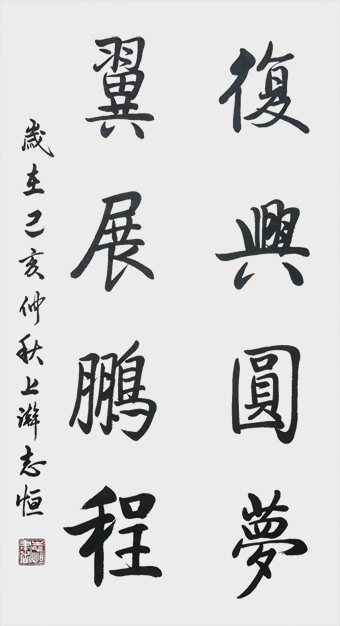 復興圓夢
翼展鵬程
歲在己亥仲秋上游志恒